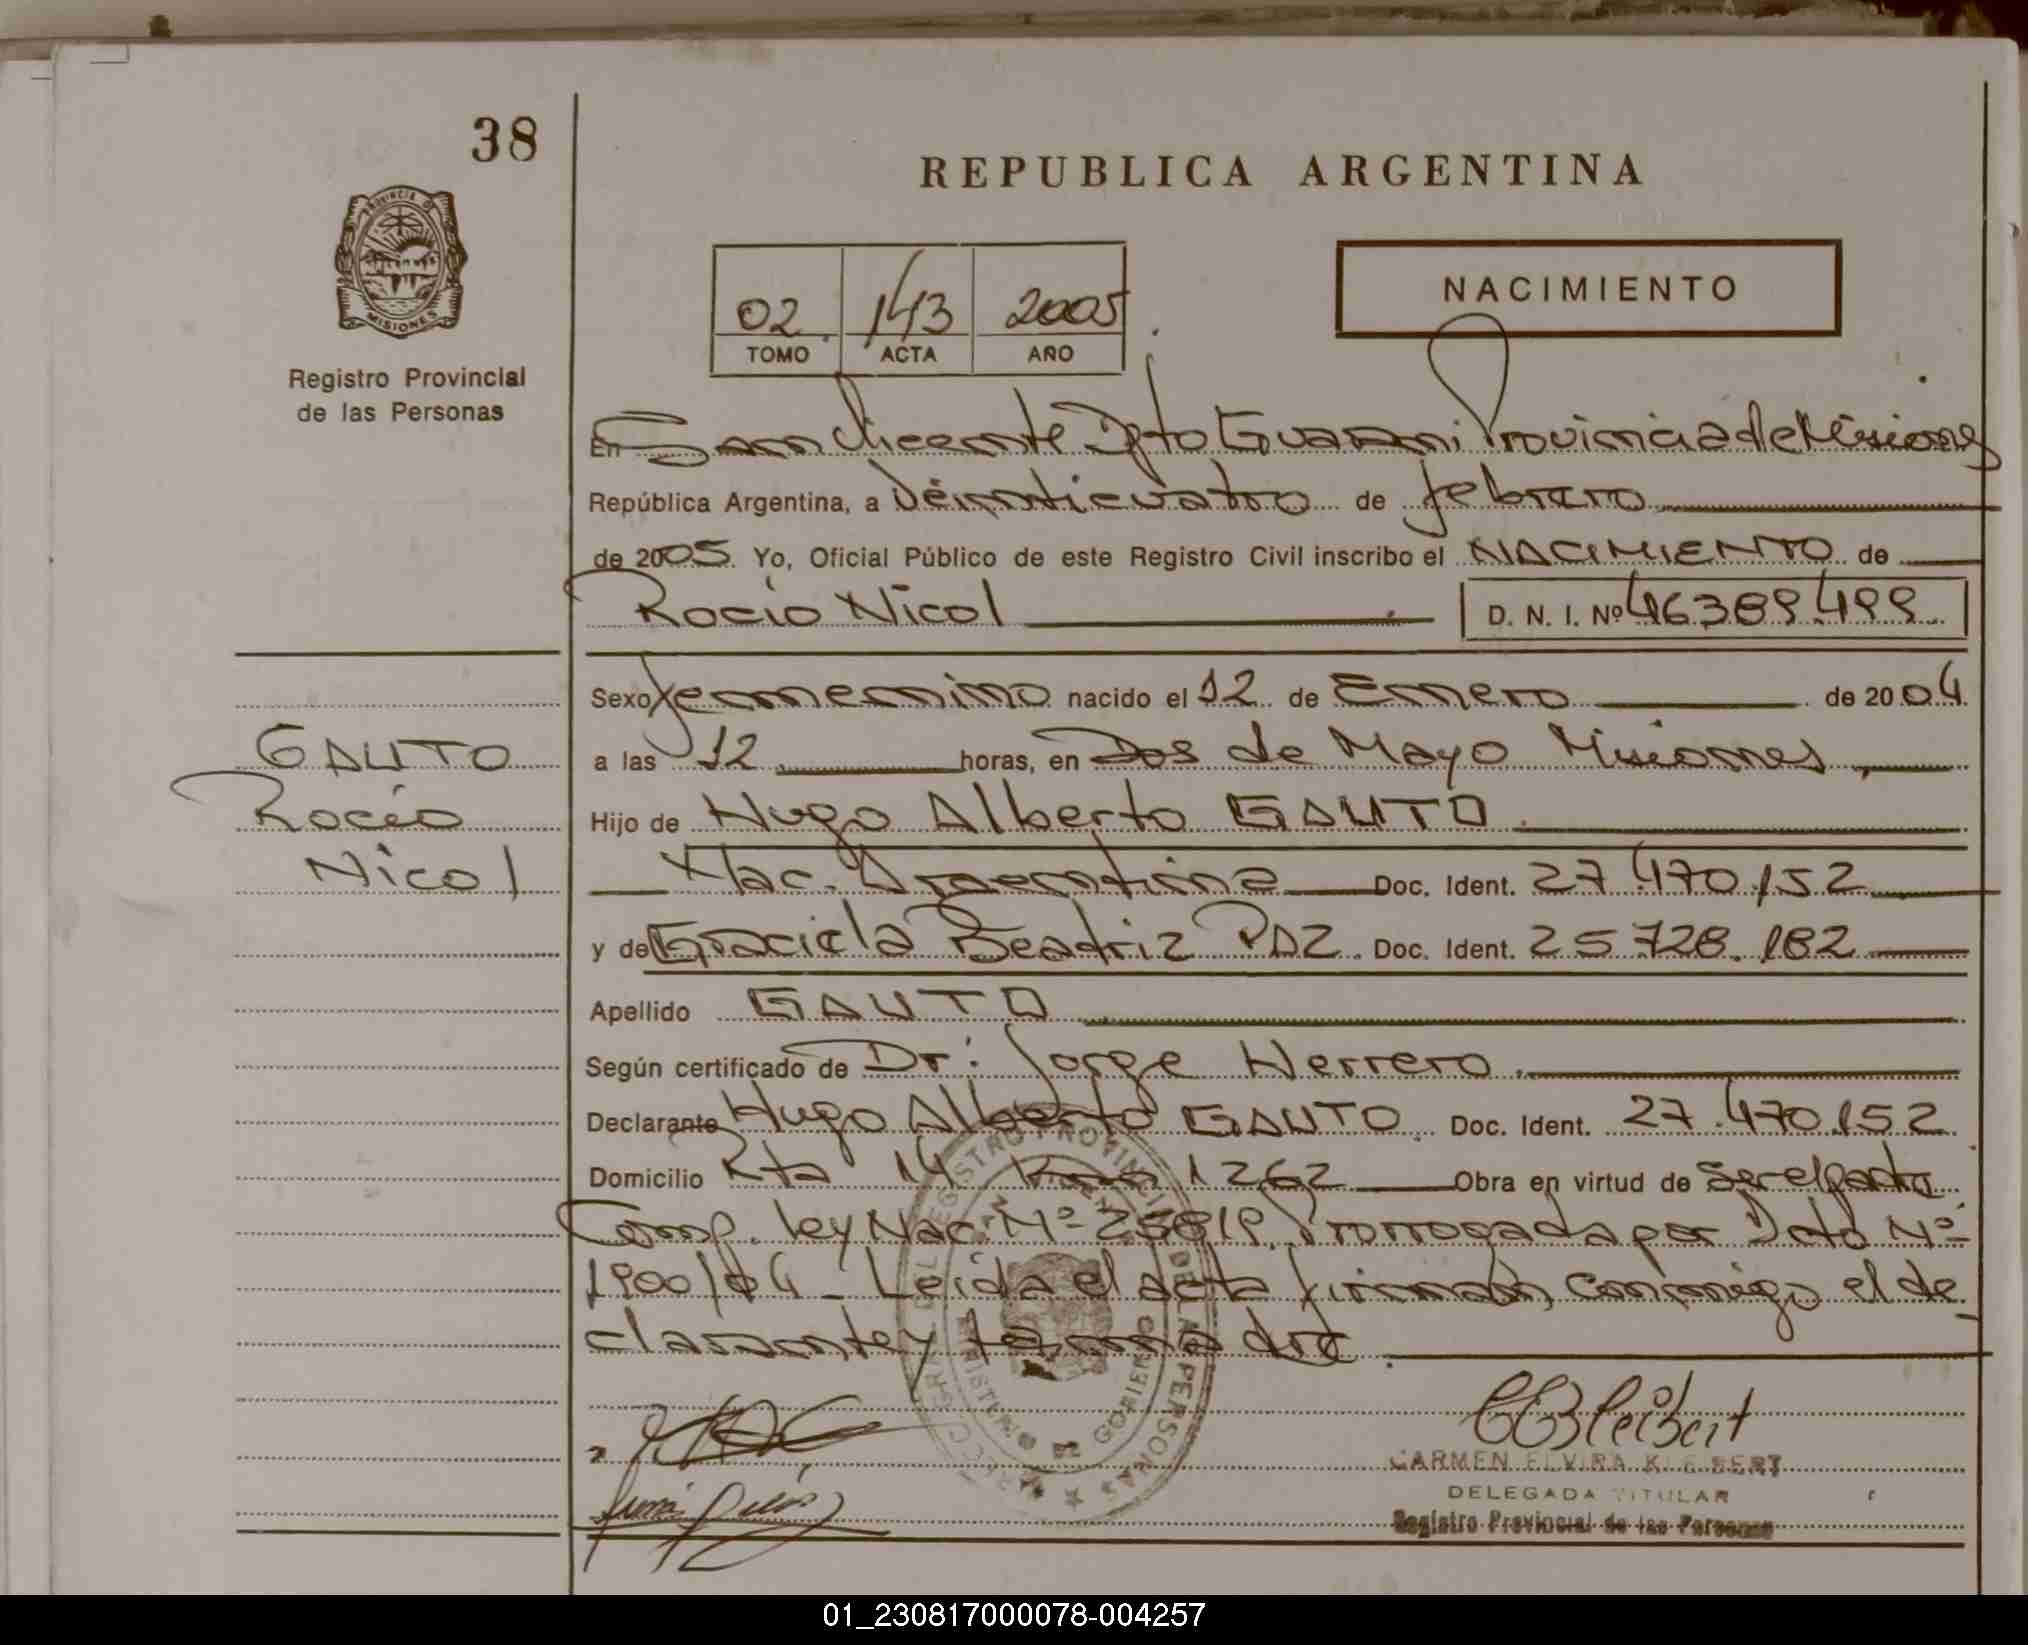 38
REPUBLICA ARGENTINA
PROVINCIA D
MISIONES
Registro Provincial
de las Personas
02 143 2005
TOMO ACTA AÑO
NACIMIENTO
En San Vicente Dpto Guarani Provincia de Misiones
República Argentina, a Veinticuatro de febrero
de 2005. Yo, Oficial Público de este Registro Civil inscribo el NACIMIENTO de
Rocio Nicol D. N. I. Nº 46389499
Sexo femenino nacido el 12 de Enero de 2004
a las 12 horas, en Dos de Mayo Misiones,
GAUTO
Rocio
Nicol
Hijo de Hugo Alberto GAUTO
Nac. Argentina Doc. Ident. 27.470.152
y de Graciela Beatriz PAZ. Doc. Ident. 25.728.182
Apellido GAUTO
Según certificado de Dr: Jorge Herrero
Declarante Hugo Alberto GAUTO. Doc. Ident. 27.470.152
Domicilio Rta 14 Km 1262 Obra en virtud de
Comp. ley Nac. Nº 25819. Prorrogada por Dcto Nº
1900/04 - Leida el acta firman conmigo el de
clarante y la madre.
REGISTRO PROVINCIAL DE LAS PERSONAS
CARMEN ELVIRA KLEIBERT
DELEGADA TITULAR
Registro Provincial de las Personas
01_230817000078-004257